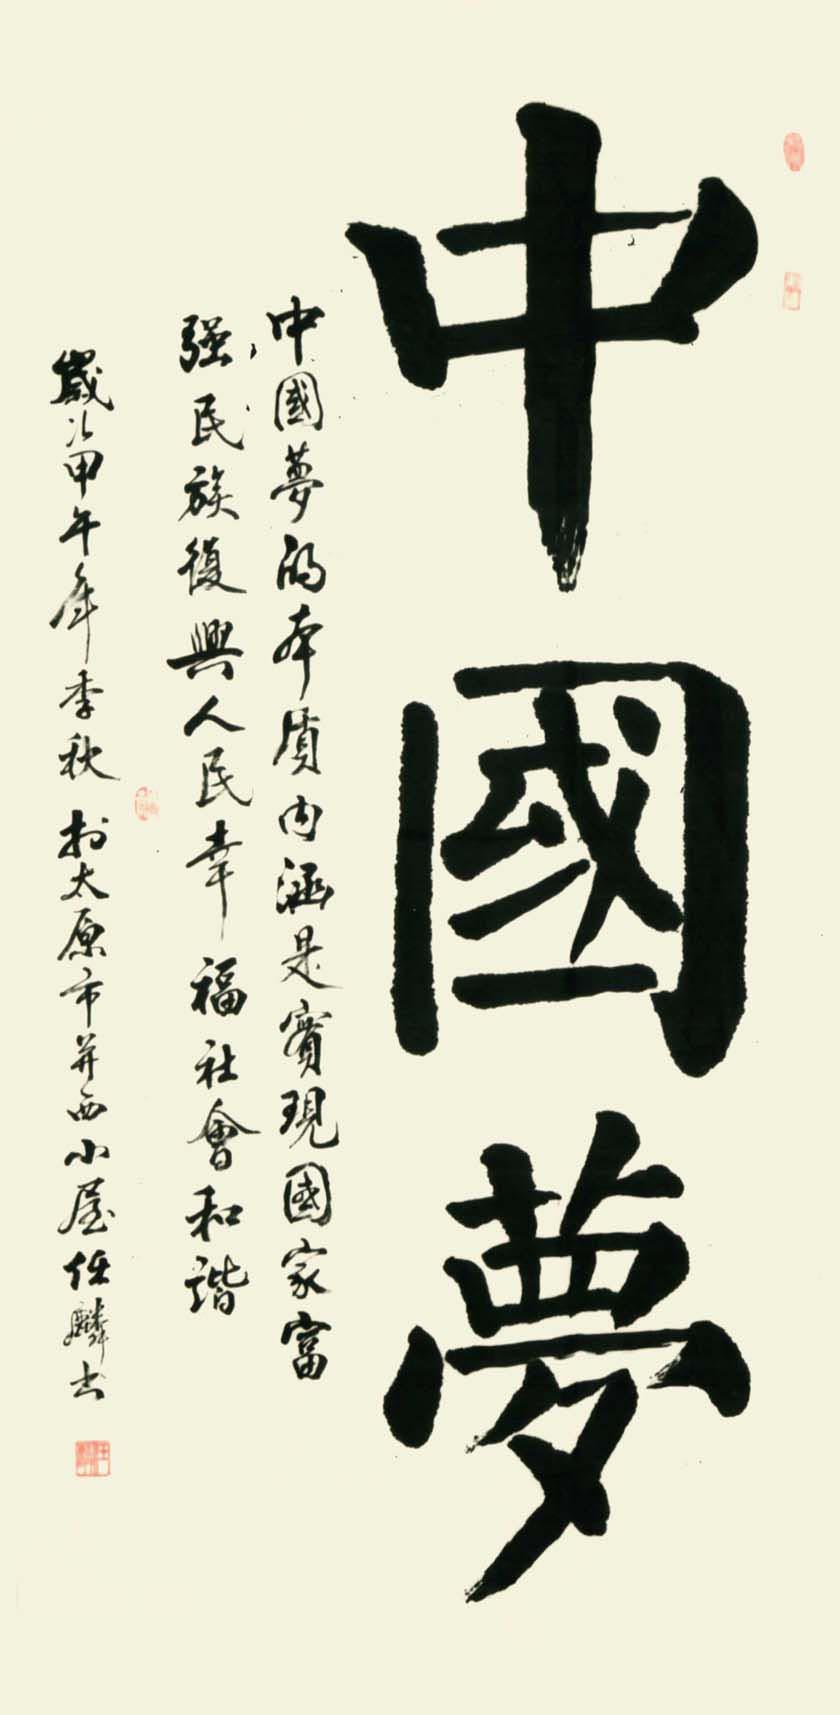 中國夢
中國夢的本质内涵是實現國家富
强民族復興人民幸福社會和諧
歲次甲午年季秋於太原市并西小屋任麟书